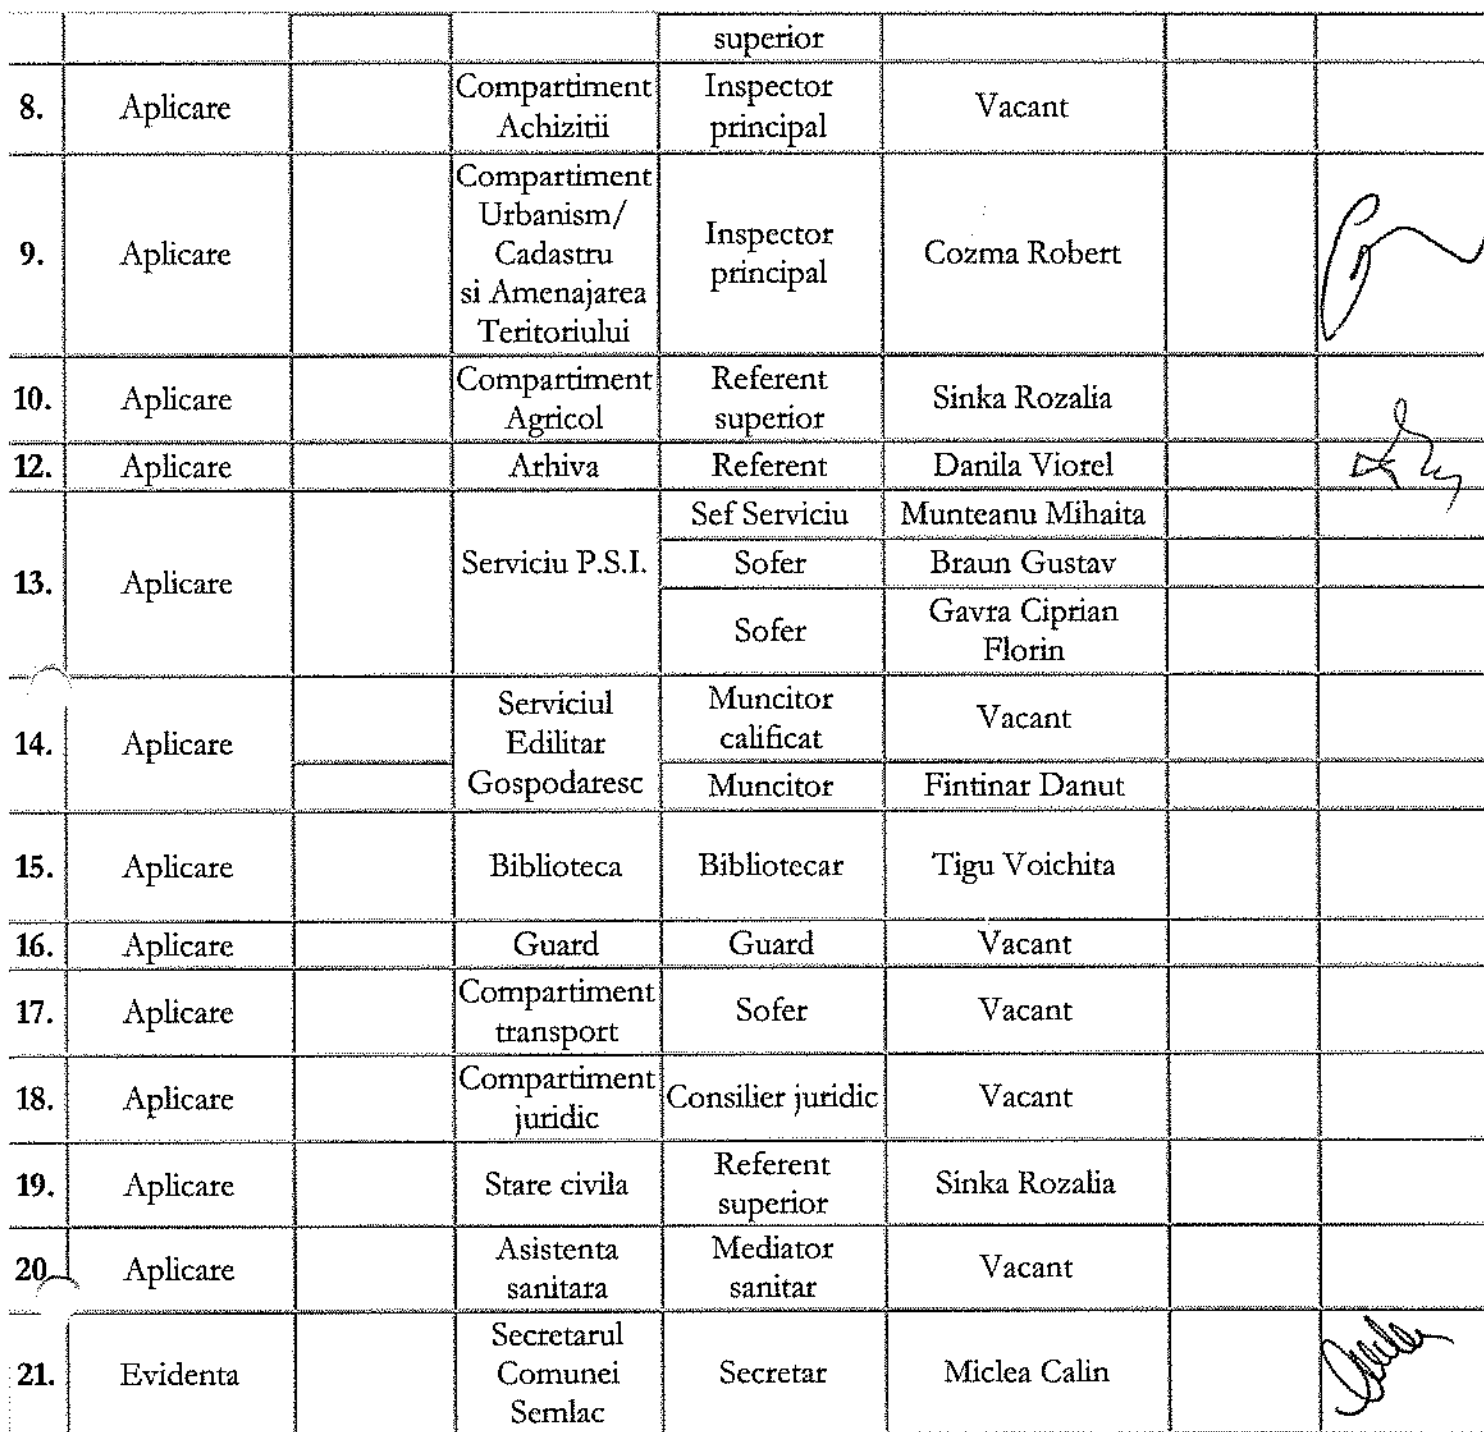 superior
8. Aplicare Compartiment Achizitii Inspector principal Vacant
9. Aplicare Compartiment Urbanism/ Cadastru si Amenajarea Teritoriului Inspector principal Cozma Robert
10. Aplicare Compartiment Agricol Referent superior Sinka Rozalia
12. Aplicare Arhiva Referent Danila Viorel
13. Aplicare Serviciu P.S.I. Sef Serviciu Munteanu Mihaita
Sofer Braun Gustav
Sofer Gavra Ciprian Florin
14. Aplicare Serviciul Edilitar Gospodaresc Muncitor calificat Vacant
Muncitor Fintinar Danut
15. Aplicare Biblioteca Bibliotecar Tigu Voichita
16. Aplicare Guard Guard Vacant
17. Aplicare Compartiment transport Sofer Vacant
18. Aplicare Compartiment juridic Consilier juridic Vacant
19. Aplicare Stare civila Referent superior Sinka Rozalia
20 Aplicare Asistenta sanitara Mediator sanitar Vacant
21. Evidenta Secretarul Comunei Semlac Secretar Miclea Calin